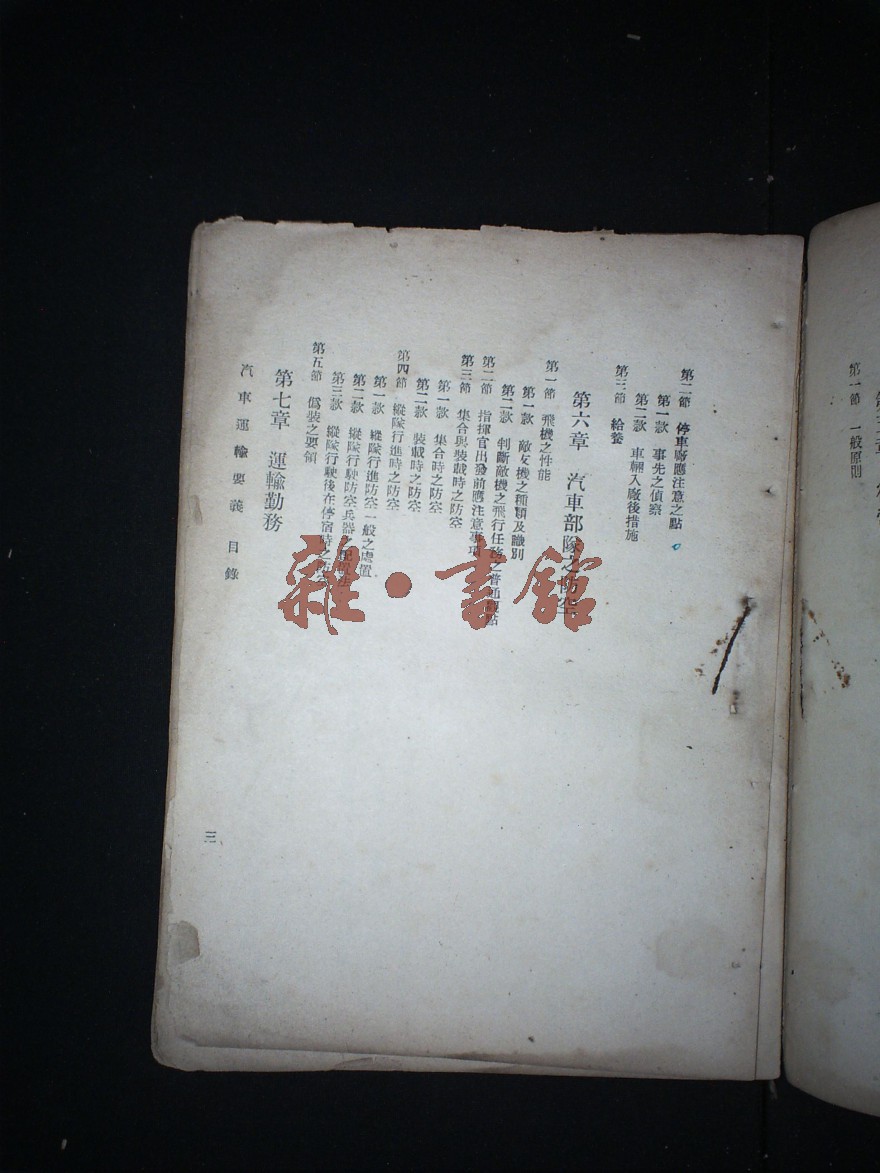 第二節 停車廠應注意之點
第一款 事先之偵察
第二款 車輛入廠後措施
第三節 給養
第六章 汽車部隊之防空
第一節 飛機之性能
第一款 敵友機之種類及識別
第二款 判斷敵機之飛行任務之普通觀點
第二節 指揮官出發前應注意事項
第三節 集合與裝載時之防空
第一款 集合時之防空
第二款 裝載時之防空
第四節 縱隊行進時之防空
第一款 縱隊行進防空一般之處置
第二款 縱隊行駛防空兵器之
第三款 縱隊行駛後在停宿時之防空
第五節 偽裝之要領
第七章 運輸勤務
汽車運輸要義 目錄
三
第一節 一般原則
雜·書館